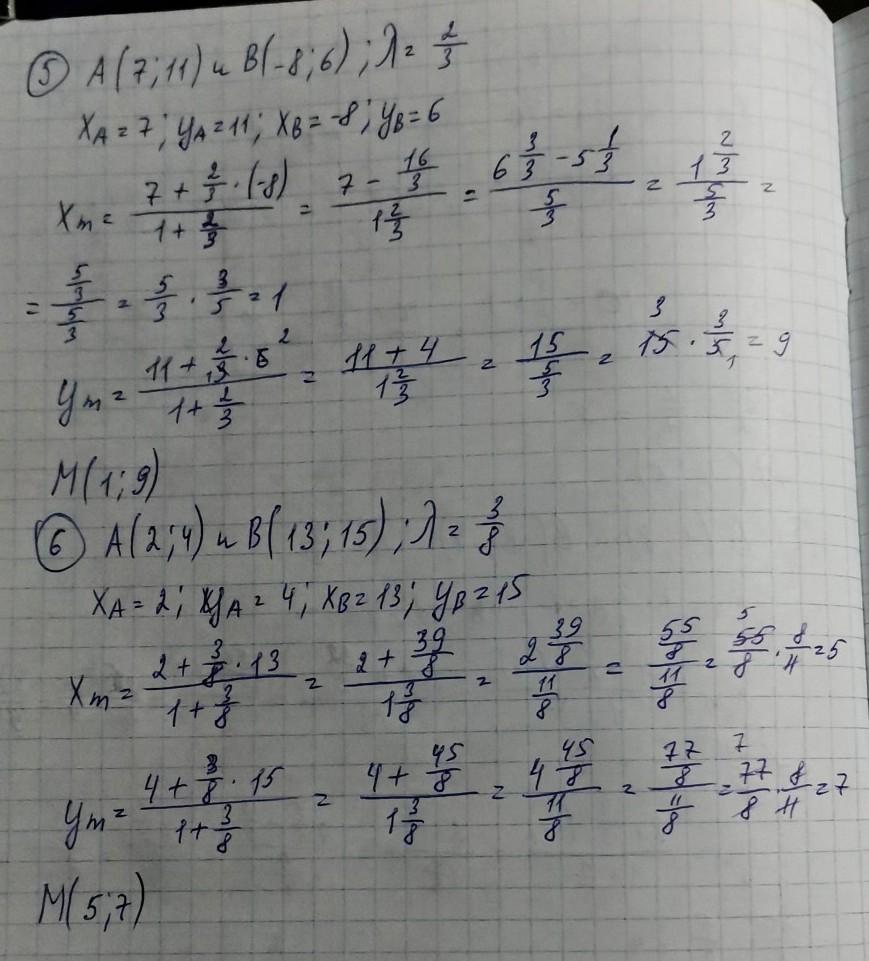 5 A(7;11) и B(-8;6); λ= 2/3
xA=7; yA=11; xB=-8; yB=6
xm= (7 + 2/3 · (-8))/(1 + 2/3) = (7 - 16/3)/(1 2/3) = (6 3/3 - 5 1/3)/(5/3) = (1 2/3)/(5/3) =
= (5/3)/(5/3) = 5/3 · 3/5 = 1
ym= (11 + 2/3 · 6)/(1 + 2/3) = (11 + 4)/(1 2/3) = 15/(5/3) = 15 · 3/5 = 9
M(1;9)
6 A(2;4) и B(13;15); λ= 3/8
xA=2; yA=4; xB=13; yB=15
xm= (2 + 3/8 · 13)/(1 + 3/8) = (2 + 39/8)/(1 3/8) = (2 39/8)/(11/8) = (55/8)/(11/8) = 55/8 · 8/11 = 5
ym= (4 + 3/8 · 15)/(1 + 3/8) = (4 + 45/8)/(1 3/8) = (4 45/8)/(11/8) = (77/8)/(11/8) = 77/8 · 8/11 = 7
M(5;7)